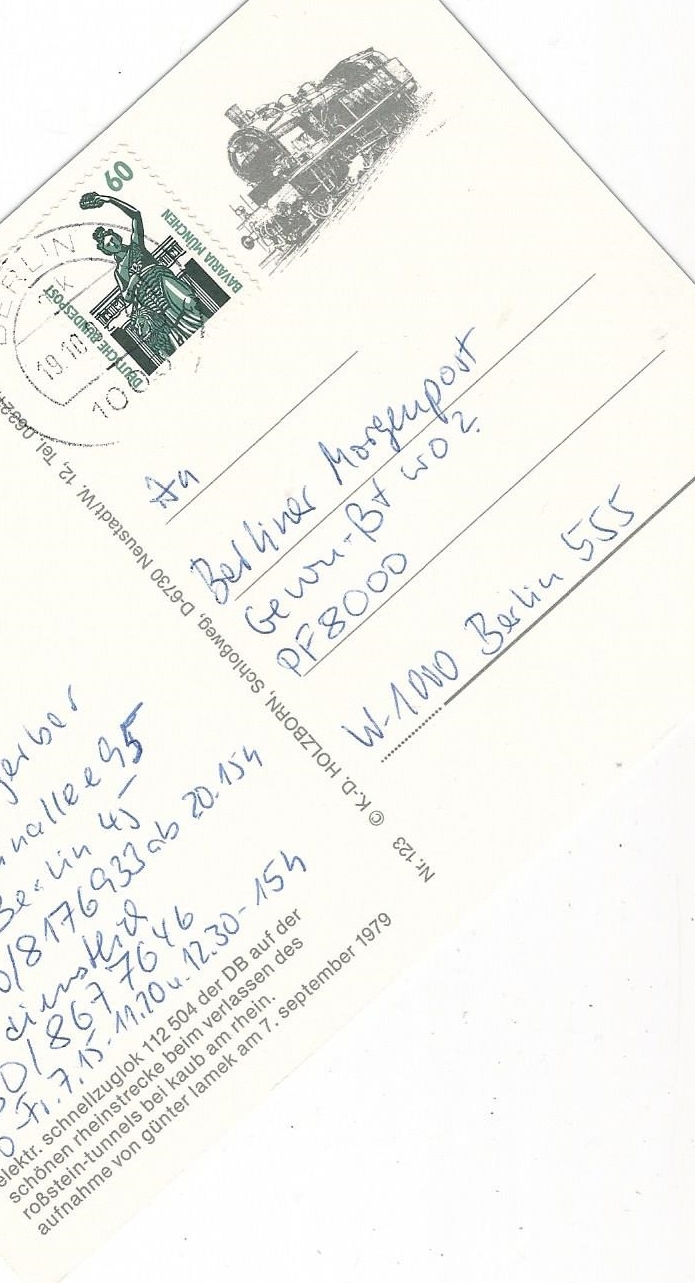 60
BAVARIA MÜNCHEN
DEUTSCHE BUNDESPOST
BERLIN
19.10
An
Berliner Morgenpost
Gewinn-Bt WO 2.
PF 8000
W-1000 Berlin 555
Nr. 123 © K.-D. HOLZBORN, Schloßweg, D-6730 Neustadt/W. 12, Tel. 06324
gerber
allee 95
Berlin 45
0/8176933 ab 20.15h
dienstlich
0/867 76 46
Fr. 7.15-11.20 u. 12.30-15h
elektr. schnellzuglok 112 504 der DB auf der
schönen rheinstrecke beim verlassen des
roßstein-tunnels bei kaub am rhein.
aufnahme von günter lamek am 7. september 1979